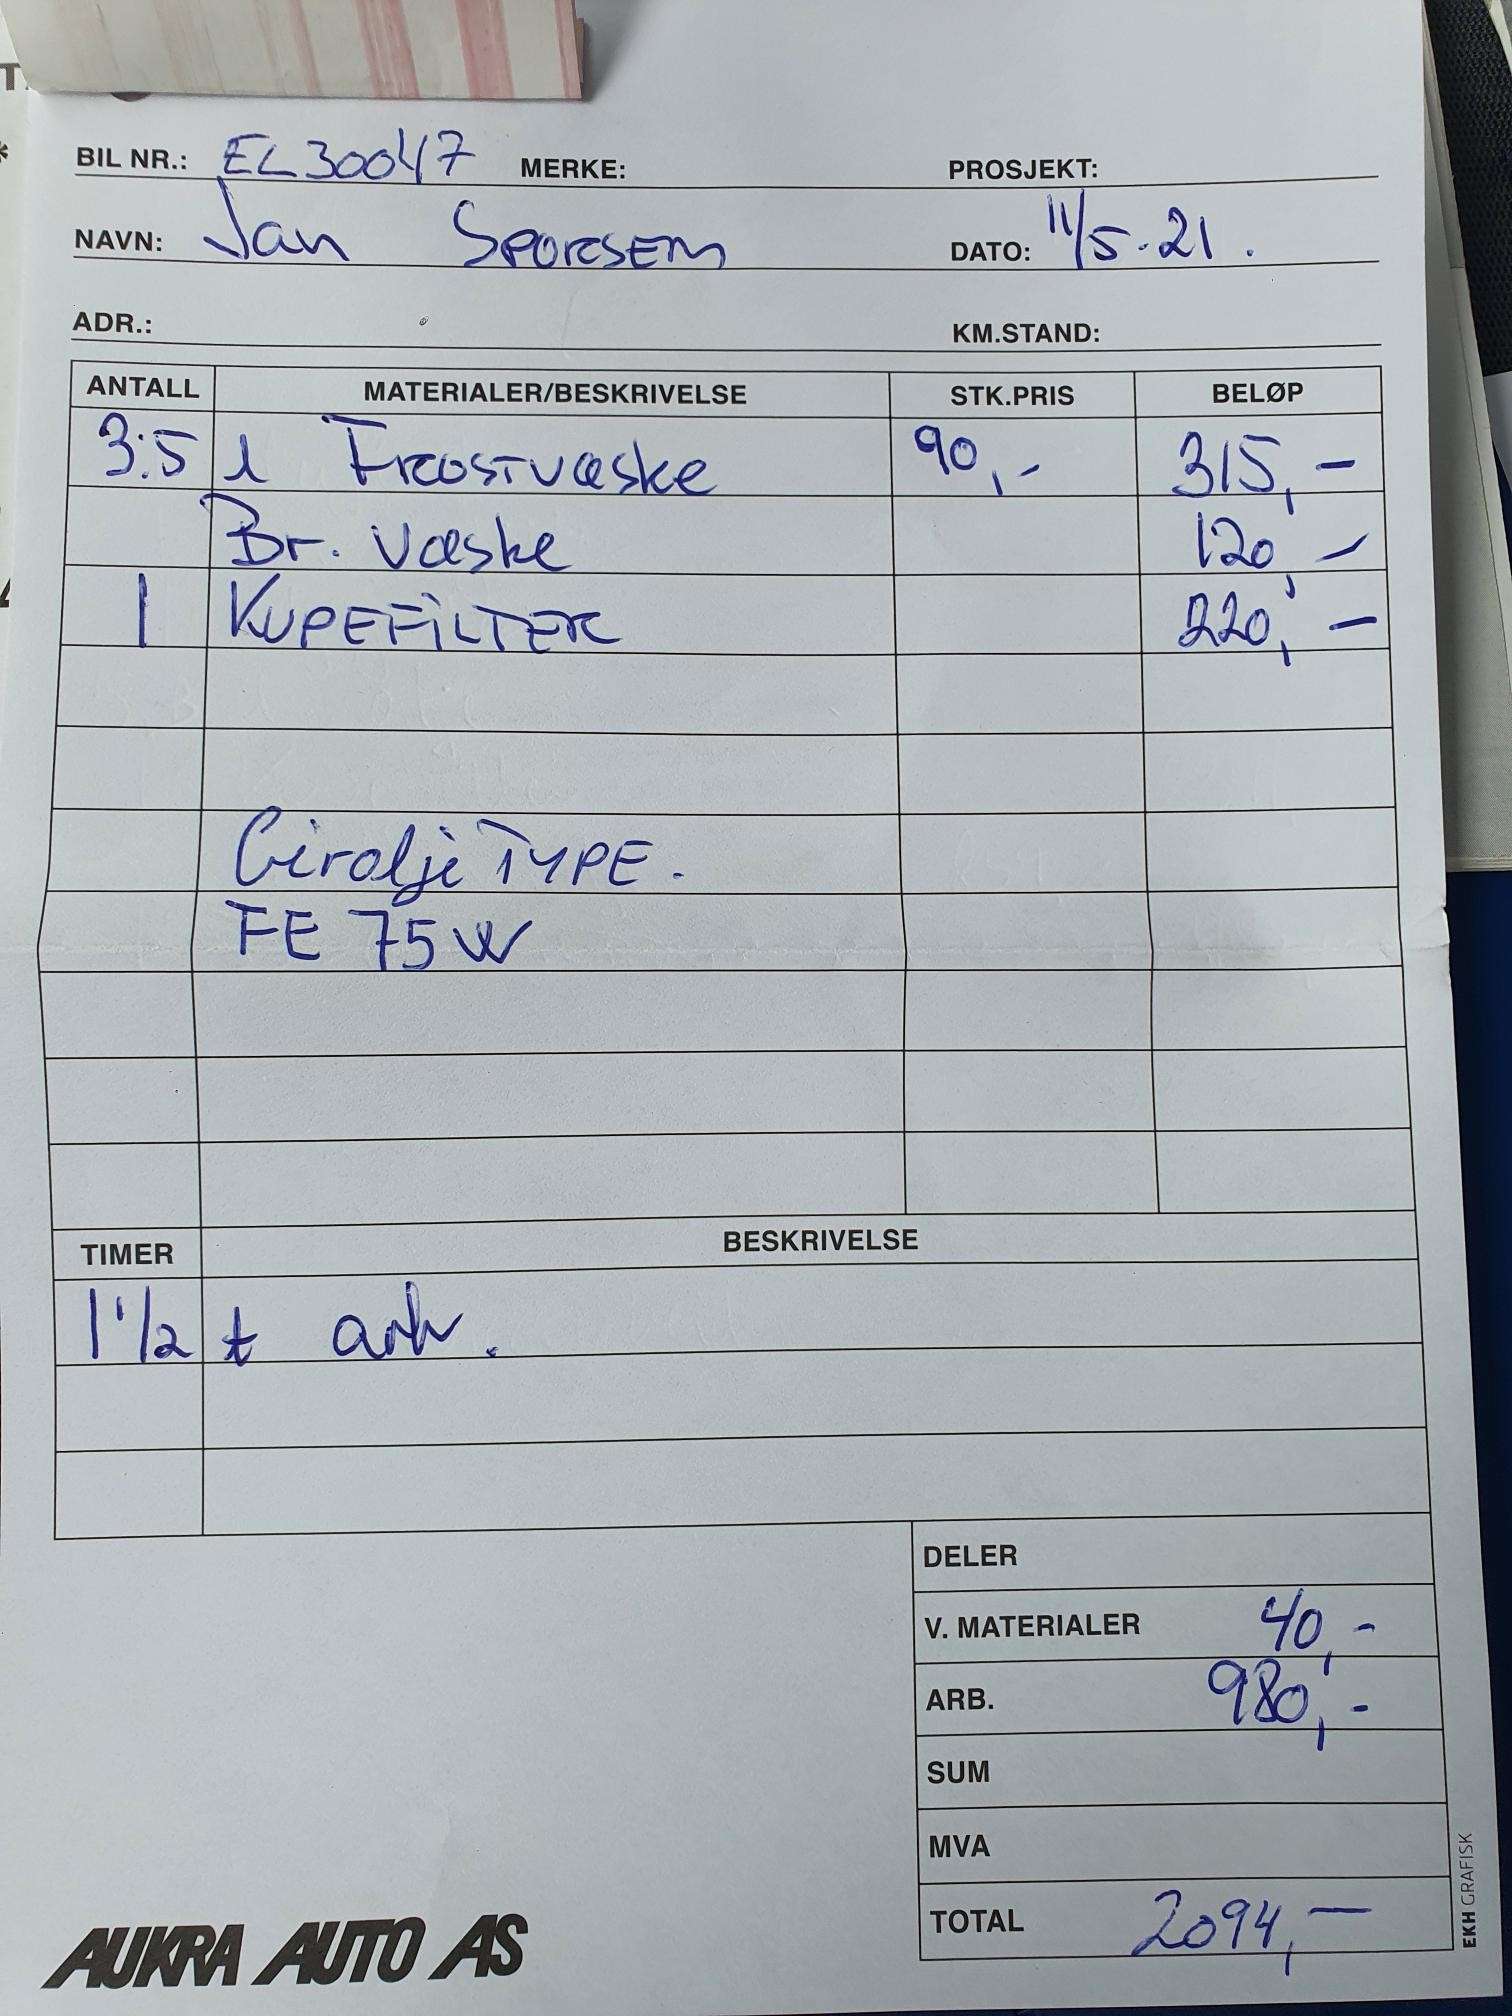 BIL NR.: EL30047 MERKE: PROSJEKT:
NAVN: Jan Sporsem DATO: 11/5.21.
ADR.: KM.STAND:
ANTALL MATERIALER/BESKRIVELSE STK.PRIS BELØP
3.5 l Frostvæske 90,- 315,-
Br. væske 120,-
1 KUPEFILTER 220,-
Girolje TYPE.
FE 75W
TIMER BESKRIVELSE
1 1/2 t arb.
DELER
V. MATERIALER 40,-
ARB. 980,-
SUM
MVA
TOTAL 2094,-
AUKRA AUTO AS
EKH GRAFISK